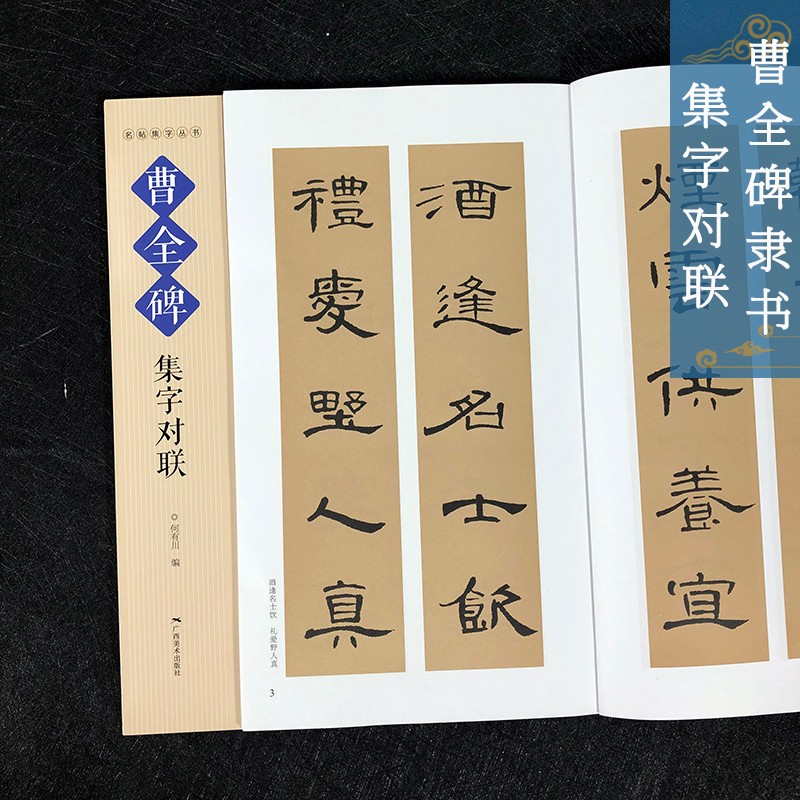 曹全碑隶书
集字对联
名帖集字丛书
曹全碑
集字对联
何有川 编
广西美术出版社
酒逢名士飲
禮愛野人真
酒逢名士饮 礼爱野人真
3
煙雲供養宜